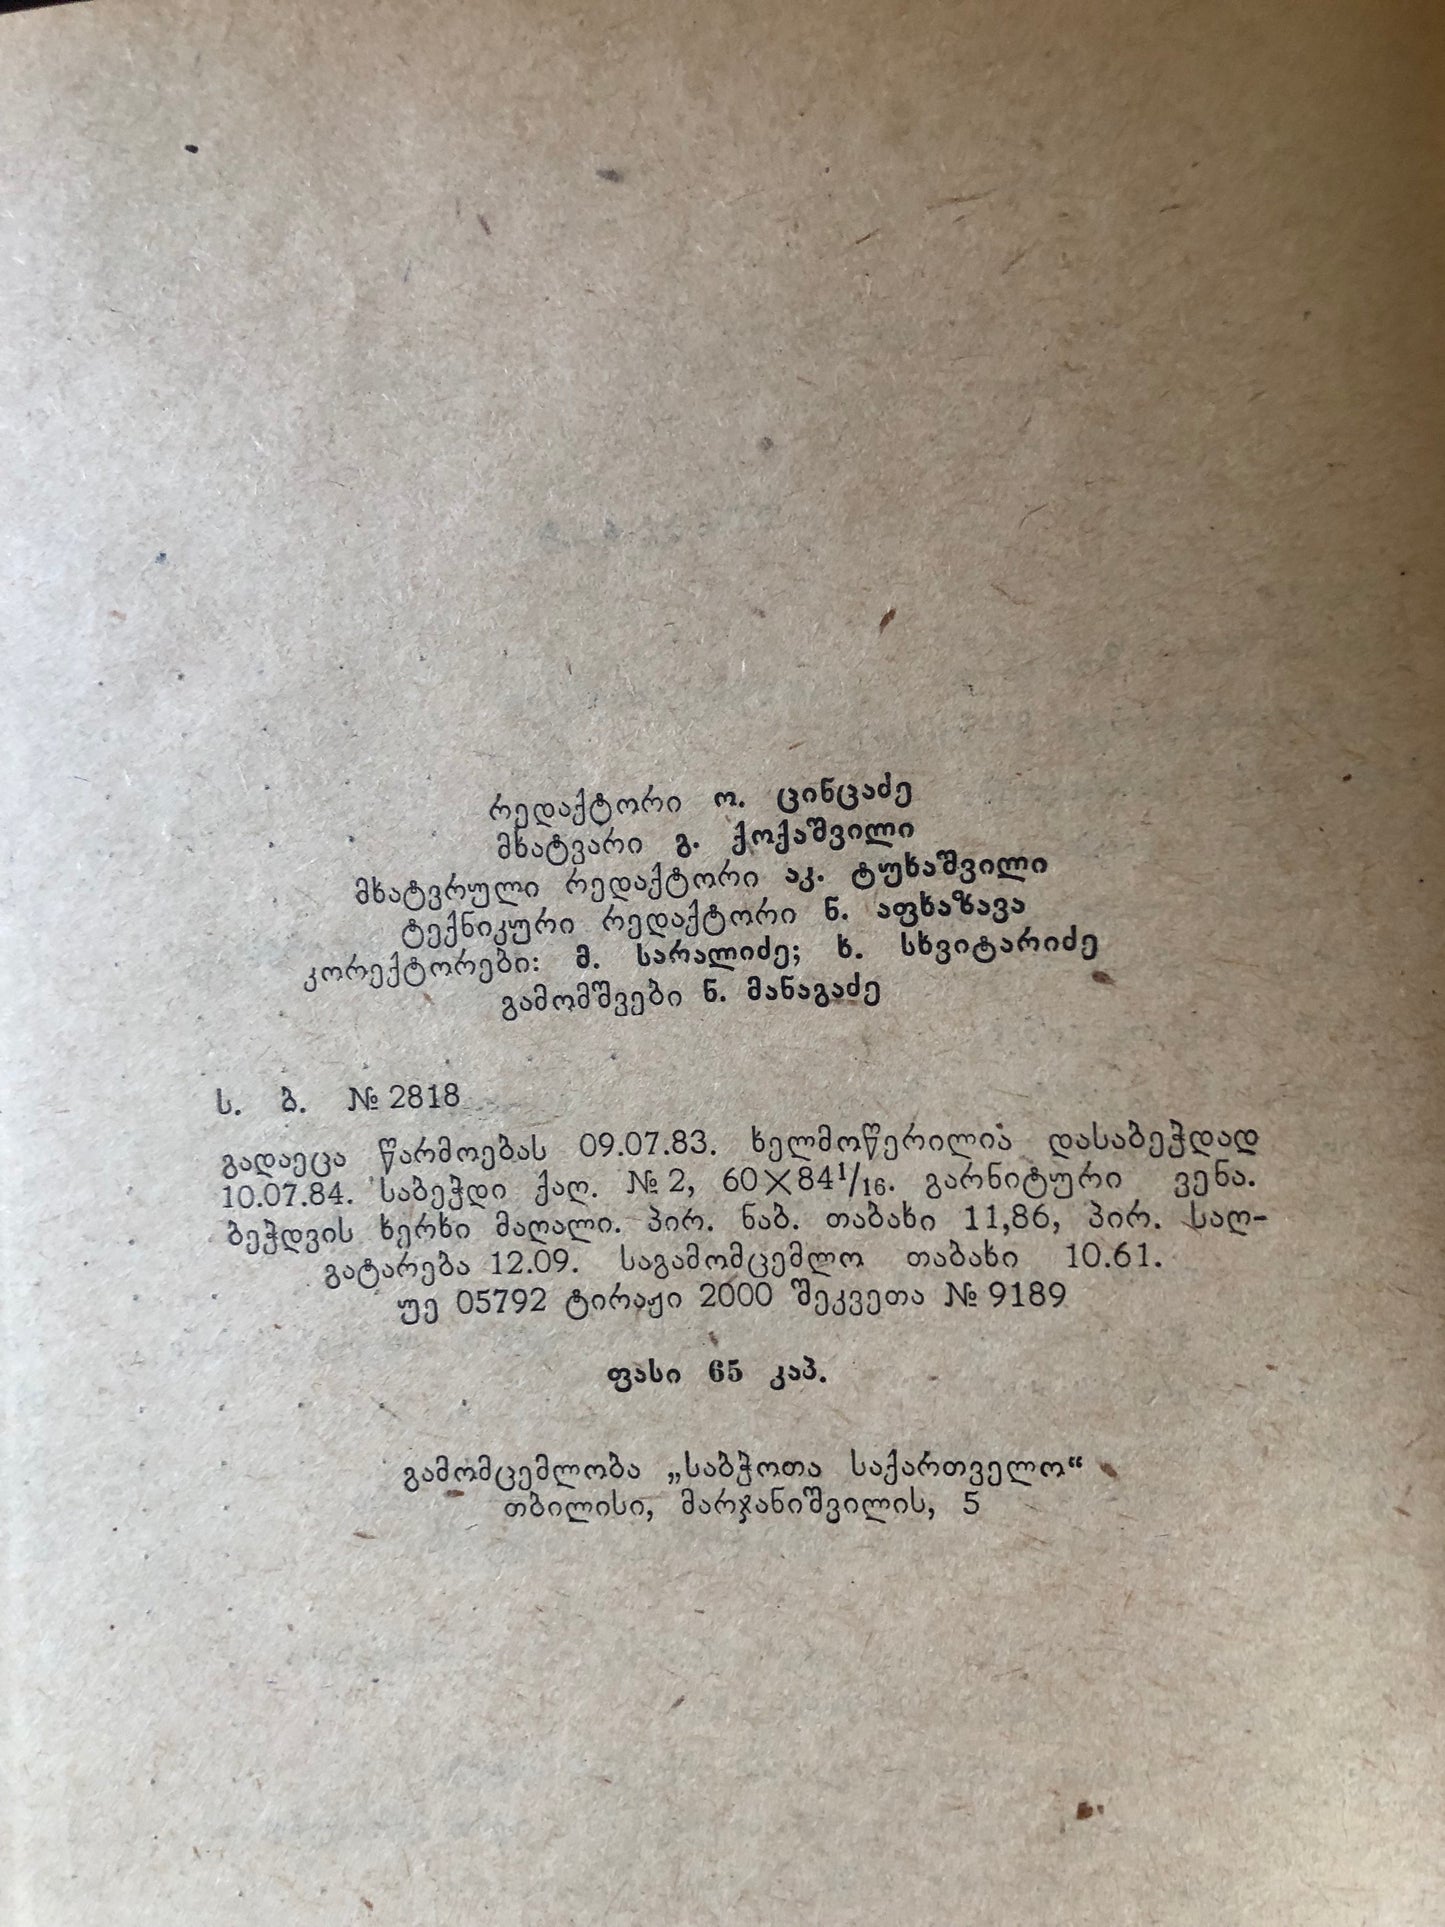 რედაქტორი ო. ცინცაძე
მხატვარი გ. ქოქაშვილი
მხატვრული რედაქტორი აკ. ტუხაშვილი
ტექნიკური რედაქტორი ნ. აფხაზავა
კორექტორები: მ. სარალიძე; ხ. სხვიტარიძე
გამომშვები ნ. მანაგაძე
ს. ბ. № 2818
გადაეცა წარმოებას 09.07.83. ხელმოწერილია დასაბეჭდად
10.07.84. საბეჭდი ქაღ. № 2, 60×84¹/₁₆. გარნიტური ვენა.
ბეჭდვის ხერხი მაღალი. პირ. ნაბ. თაბახი 11,86, პირ. საღ-
გატარება 12.09. საგამომცემლო თაბახი 10.61.
უე 05792 ტირაჟი 2000 შეკვეთა № 9189
ფასი 65 კაპ.
გამომცემლობა „საბჭოთა საქართველო“
თბილისი, მარჯანიშვილის, 5